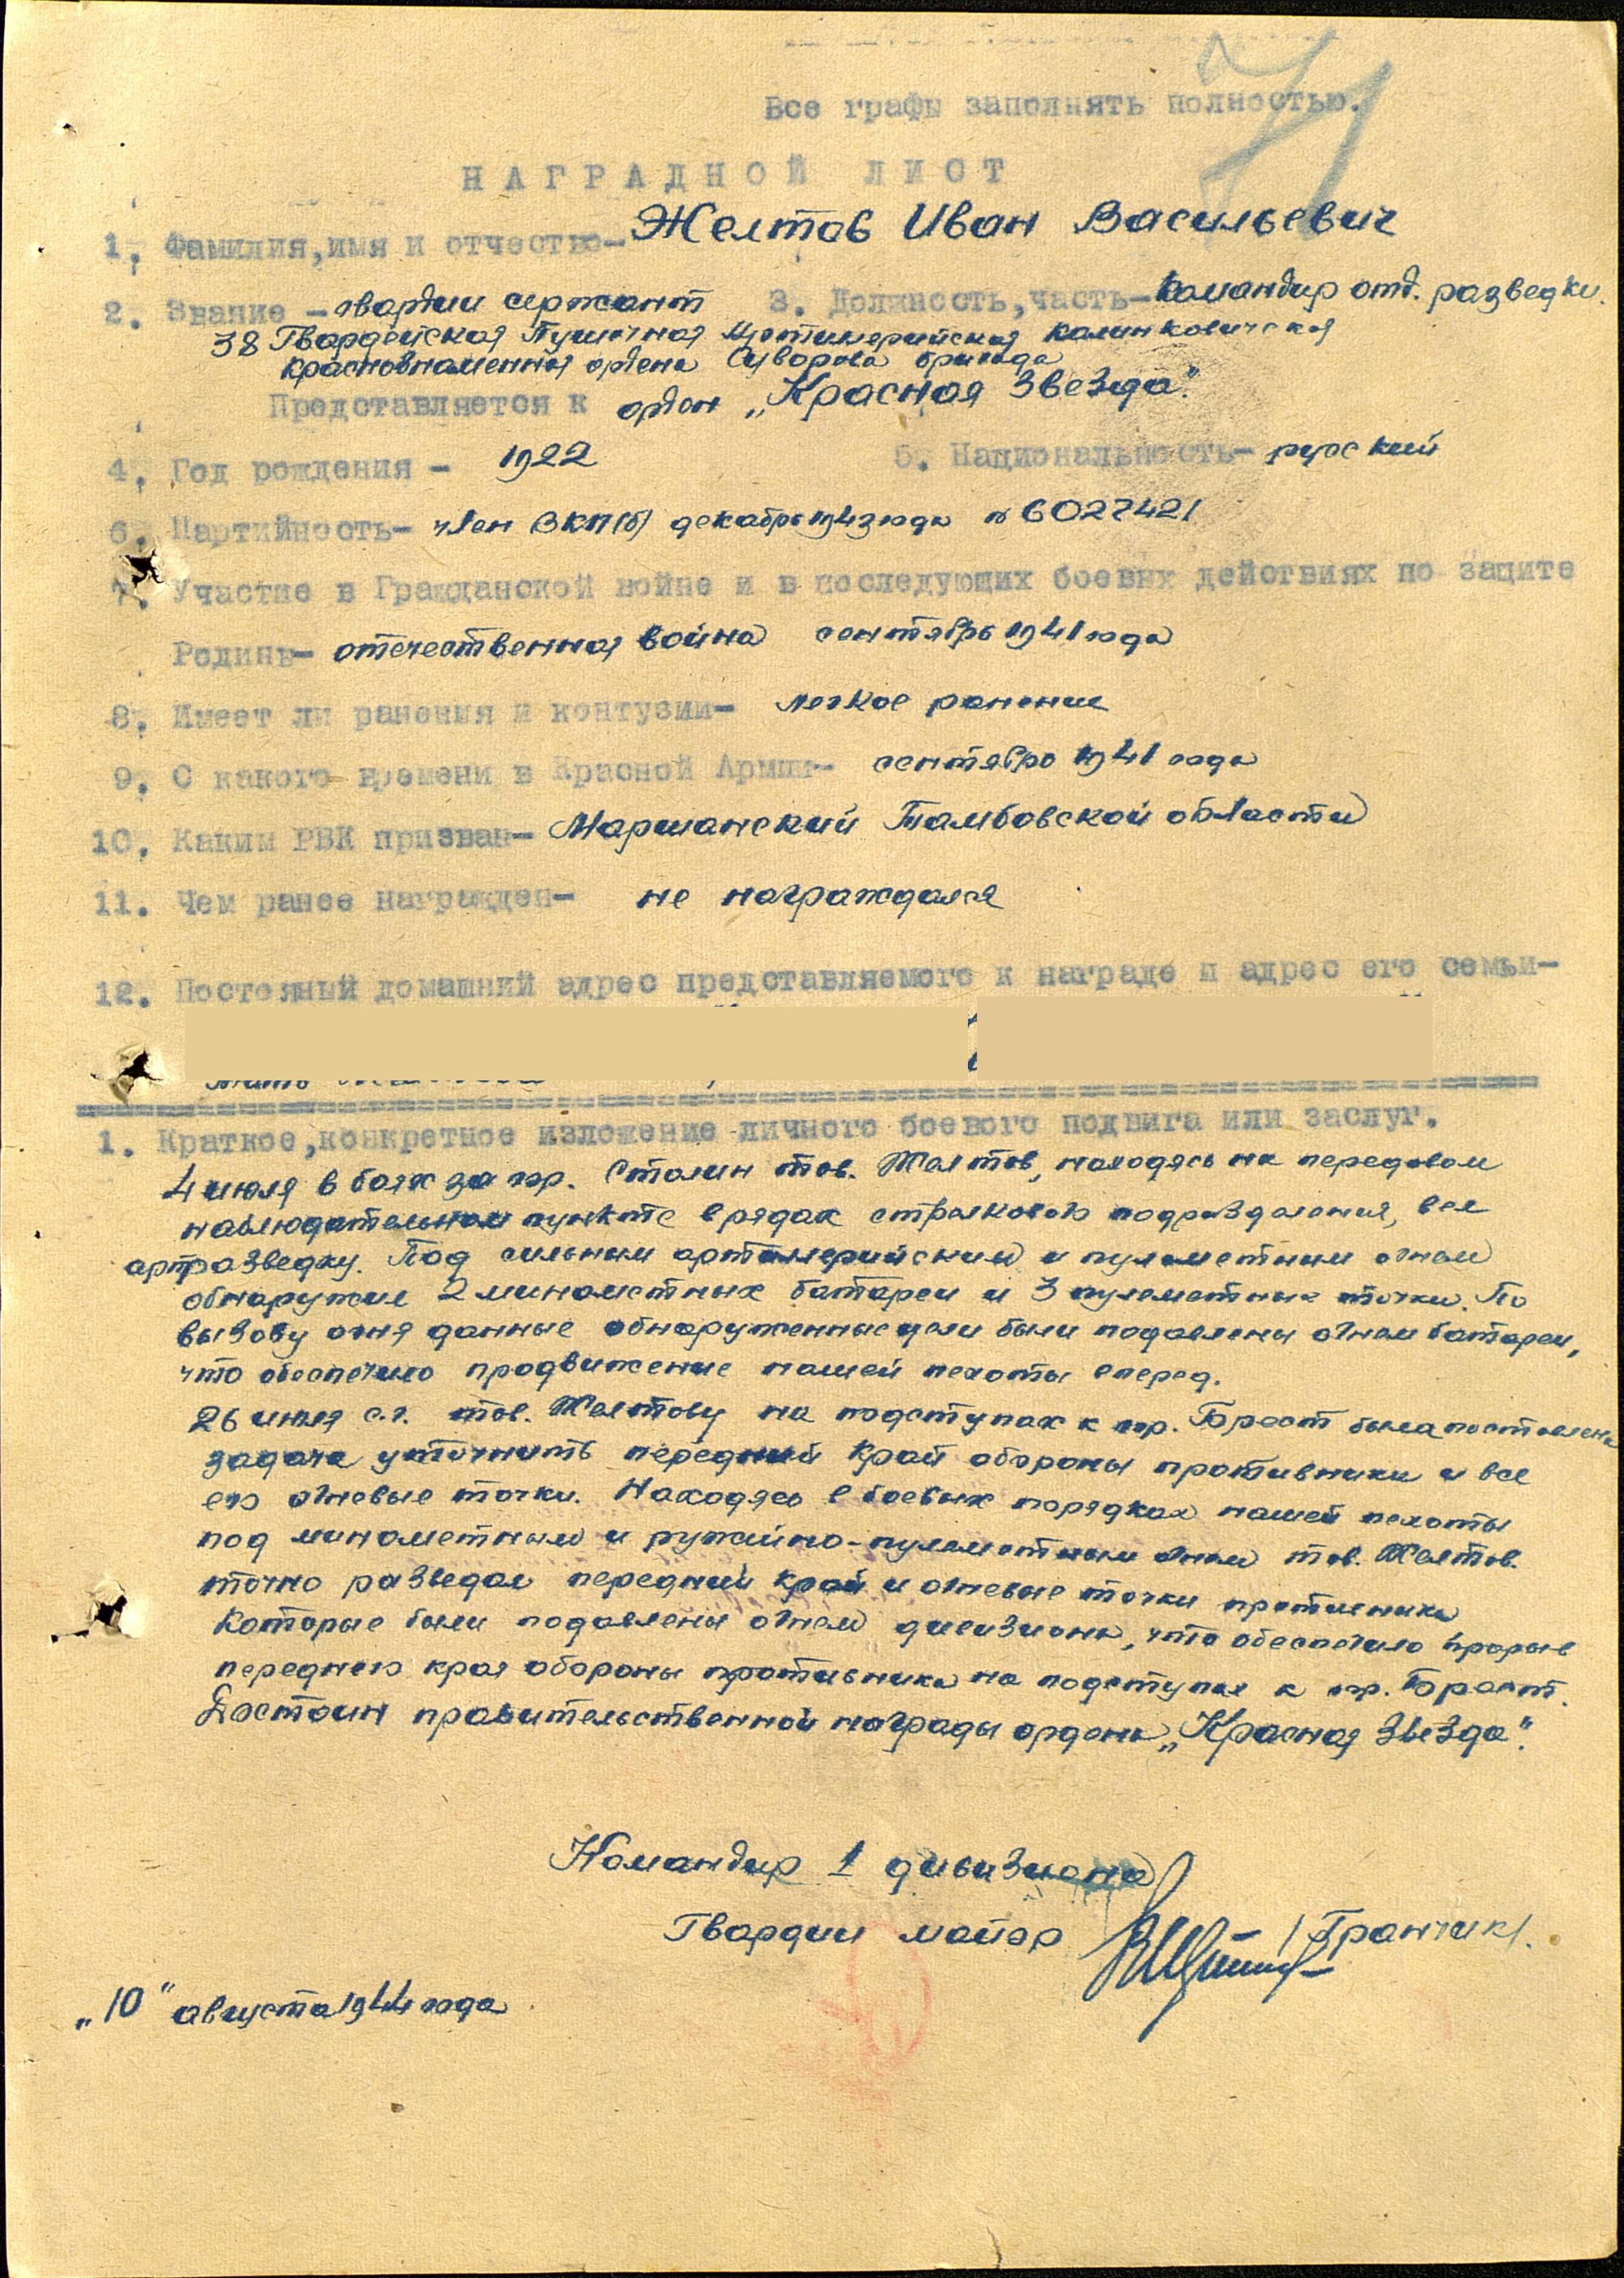 Все графы заполнять полностью.
НАГРАДНОЙ ЛИСТ
1. Фамилия,имя и отчество- Желтов Иван Васильевич
2. Звание - гвардии сержант 3. Должность,часть- Командир отд. разведки.
38 Гвардейская Пушечная Артиллерийская Калинковичская
краснознаменная ордена Суворова бригада
Представляется к орден „Красная Звезда".
4. Год рождения - 1922 5. Национальность- русский
6. Партийность- член ВКП(б) декабрь 1943 года № 6027421
7. Участие в Гражданской войне и в последующих боевых действиях по защите
Родины- отечественная война сентябрь 1941 года
8. Имеет ли ранения и контузии- легкое ранение
9. С какого времени в Красной Армии- сентябрь 1941 года
10. Каким РВК призван- Маршанский Тамбовской области
11. Чем ранее награжден- не награждался
12. Постояный домашний адрес представляемого к награде и адрес его семьи-
1. Краткое,конкретное изложение личного боевого подвига или заслуг.
4 июля в боях за гор. Столин тов. Желтов, находясь на передовом
наблюдательном пункте в рядах стрелкового подразделения, вел
артразведку. Под сильным артиллерийским и пулеметным огнем
обнаружил 2 минометных батареи и 3 пулеметные точки. По
вызову огня данные обнаруженные цели были подавлены огнем батареи,
что обеспечило продвижение нашей пехоты вперед.
26 июля с.г. тов. Желтову на подступах к гор. Брест была поставлена
задача уточнить передний край обороны противника и все
его огневые точки. Находясь в боевых порядках нашей пехоты
под минометным и ружейно-пулеметным огнем тов. Желтов
точно разведал передний край и огневые точки противника
которые были подавлены огнем дивизиона, что обеспечило прорыв
переднего края обороны противника на подступах к гор. Брест.
Достоин правительственной награды ордена „Красная Звезда".
Командир 1 дивизиона
Гвардии майор /Гранчик/.
„10" августа 1944 года